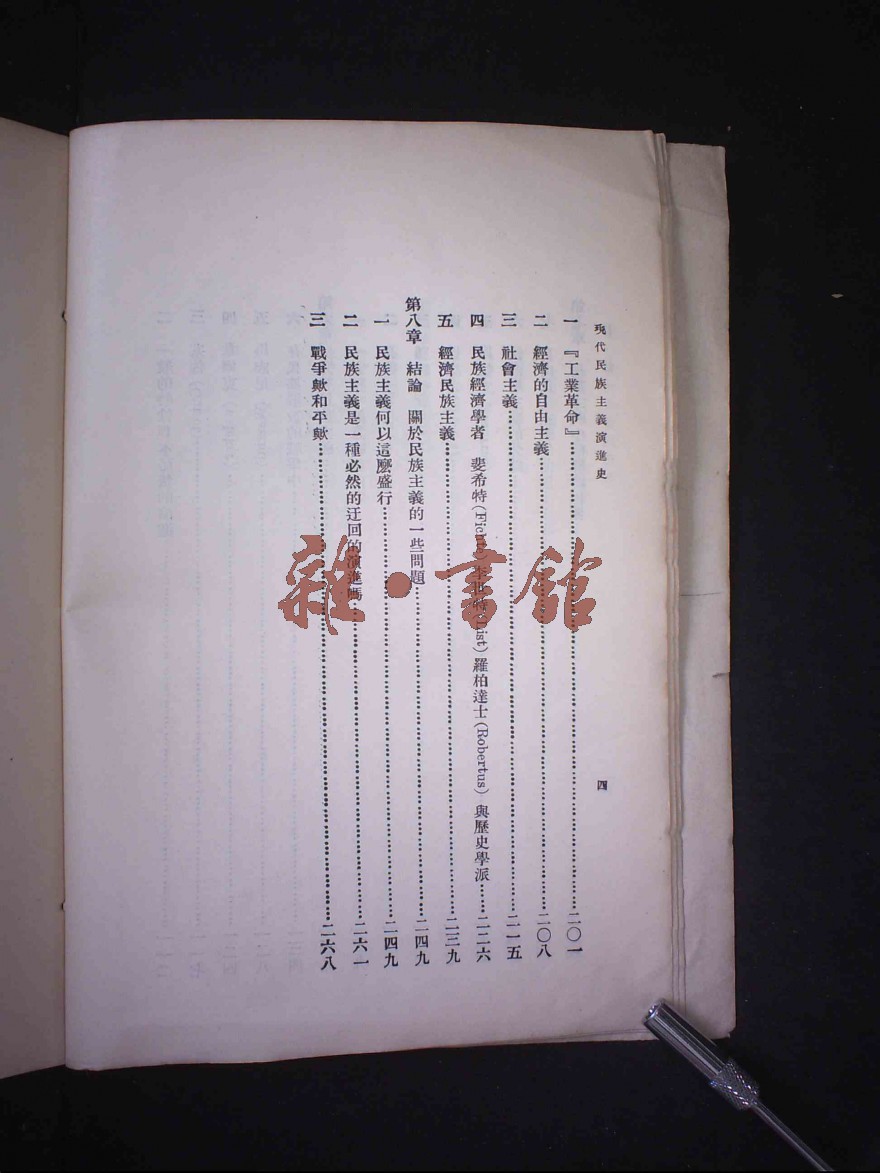 現代民族主義演進史
四
一 『工業革命』……二〇一
二 經濟的自由主義……二〇八
三 社會主義……二一五
四 民族經濟學者 斐希特(Fichte)李斯特(List)羅柏達士(Robertus)與歷史學派……二二六
五 經濟民族主義……二三九
第八章 結論 關於民族主義的一些問題……二四九
一 民族主義何以這麽盛行……二四九
二 民族主義是一種必然的迂回的演進嗎……二六一
三 戰爭歟和平歟……二六八
雜·書館